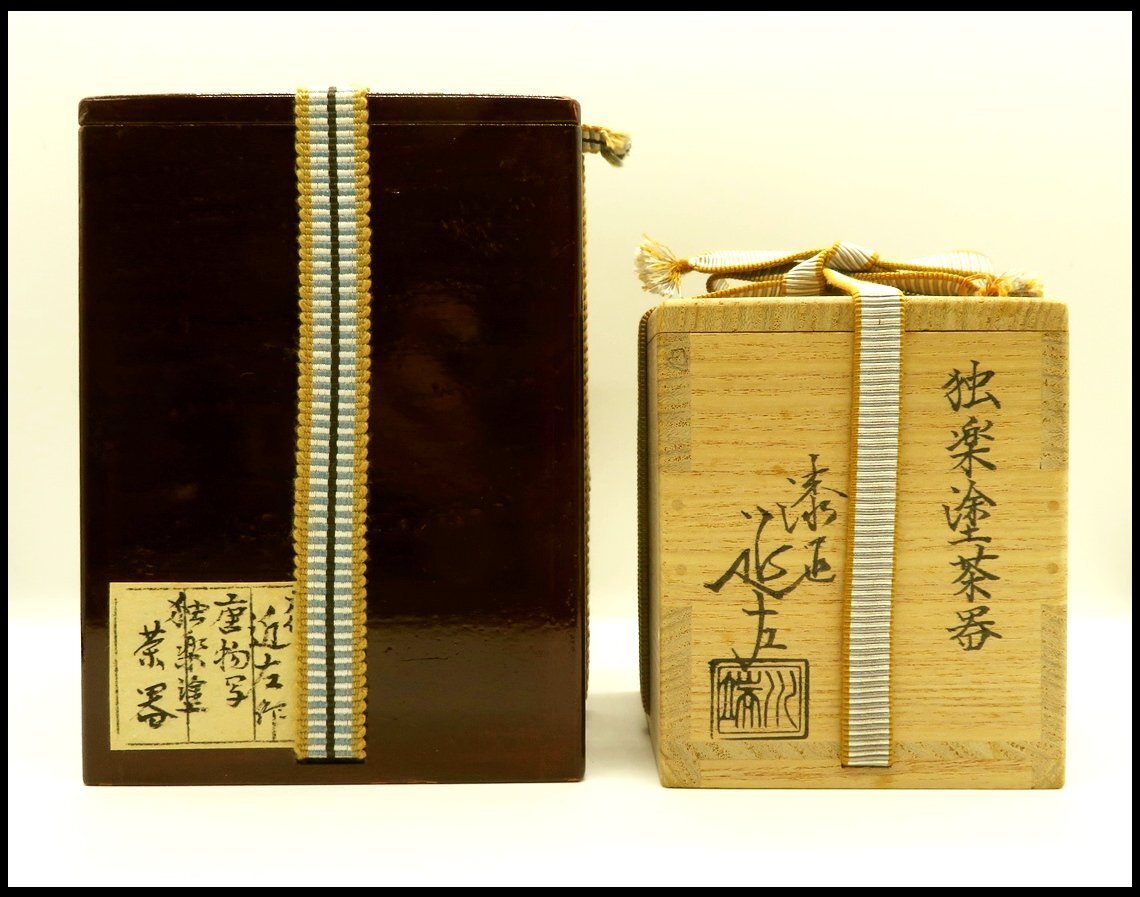 近左作
唐物写
独楽塗
茶器
独楽塗茶器
漆匠
近左
川端